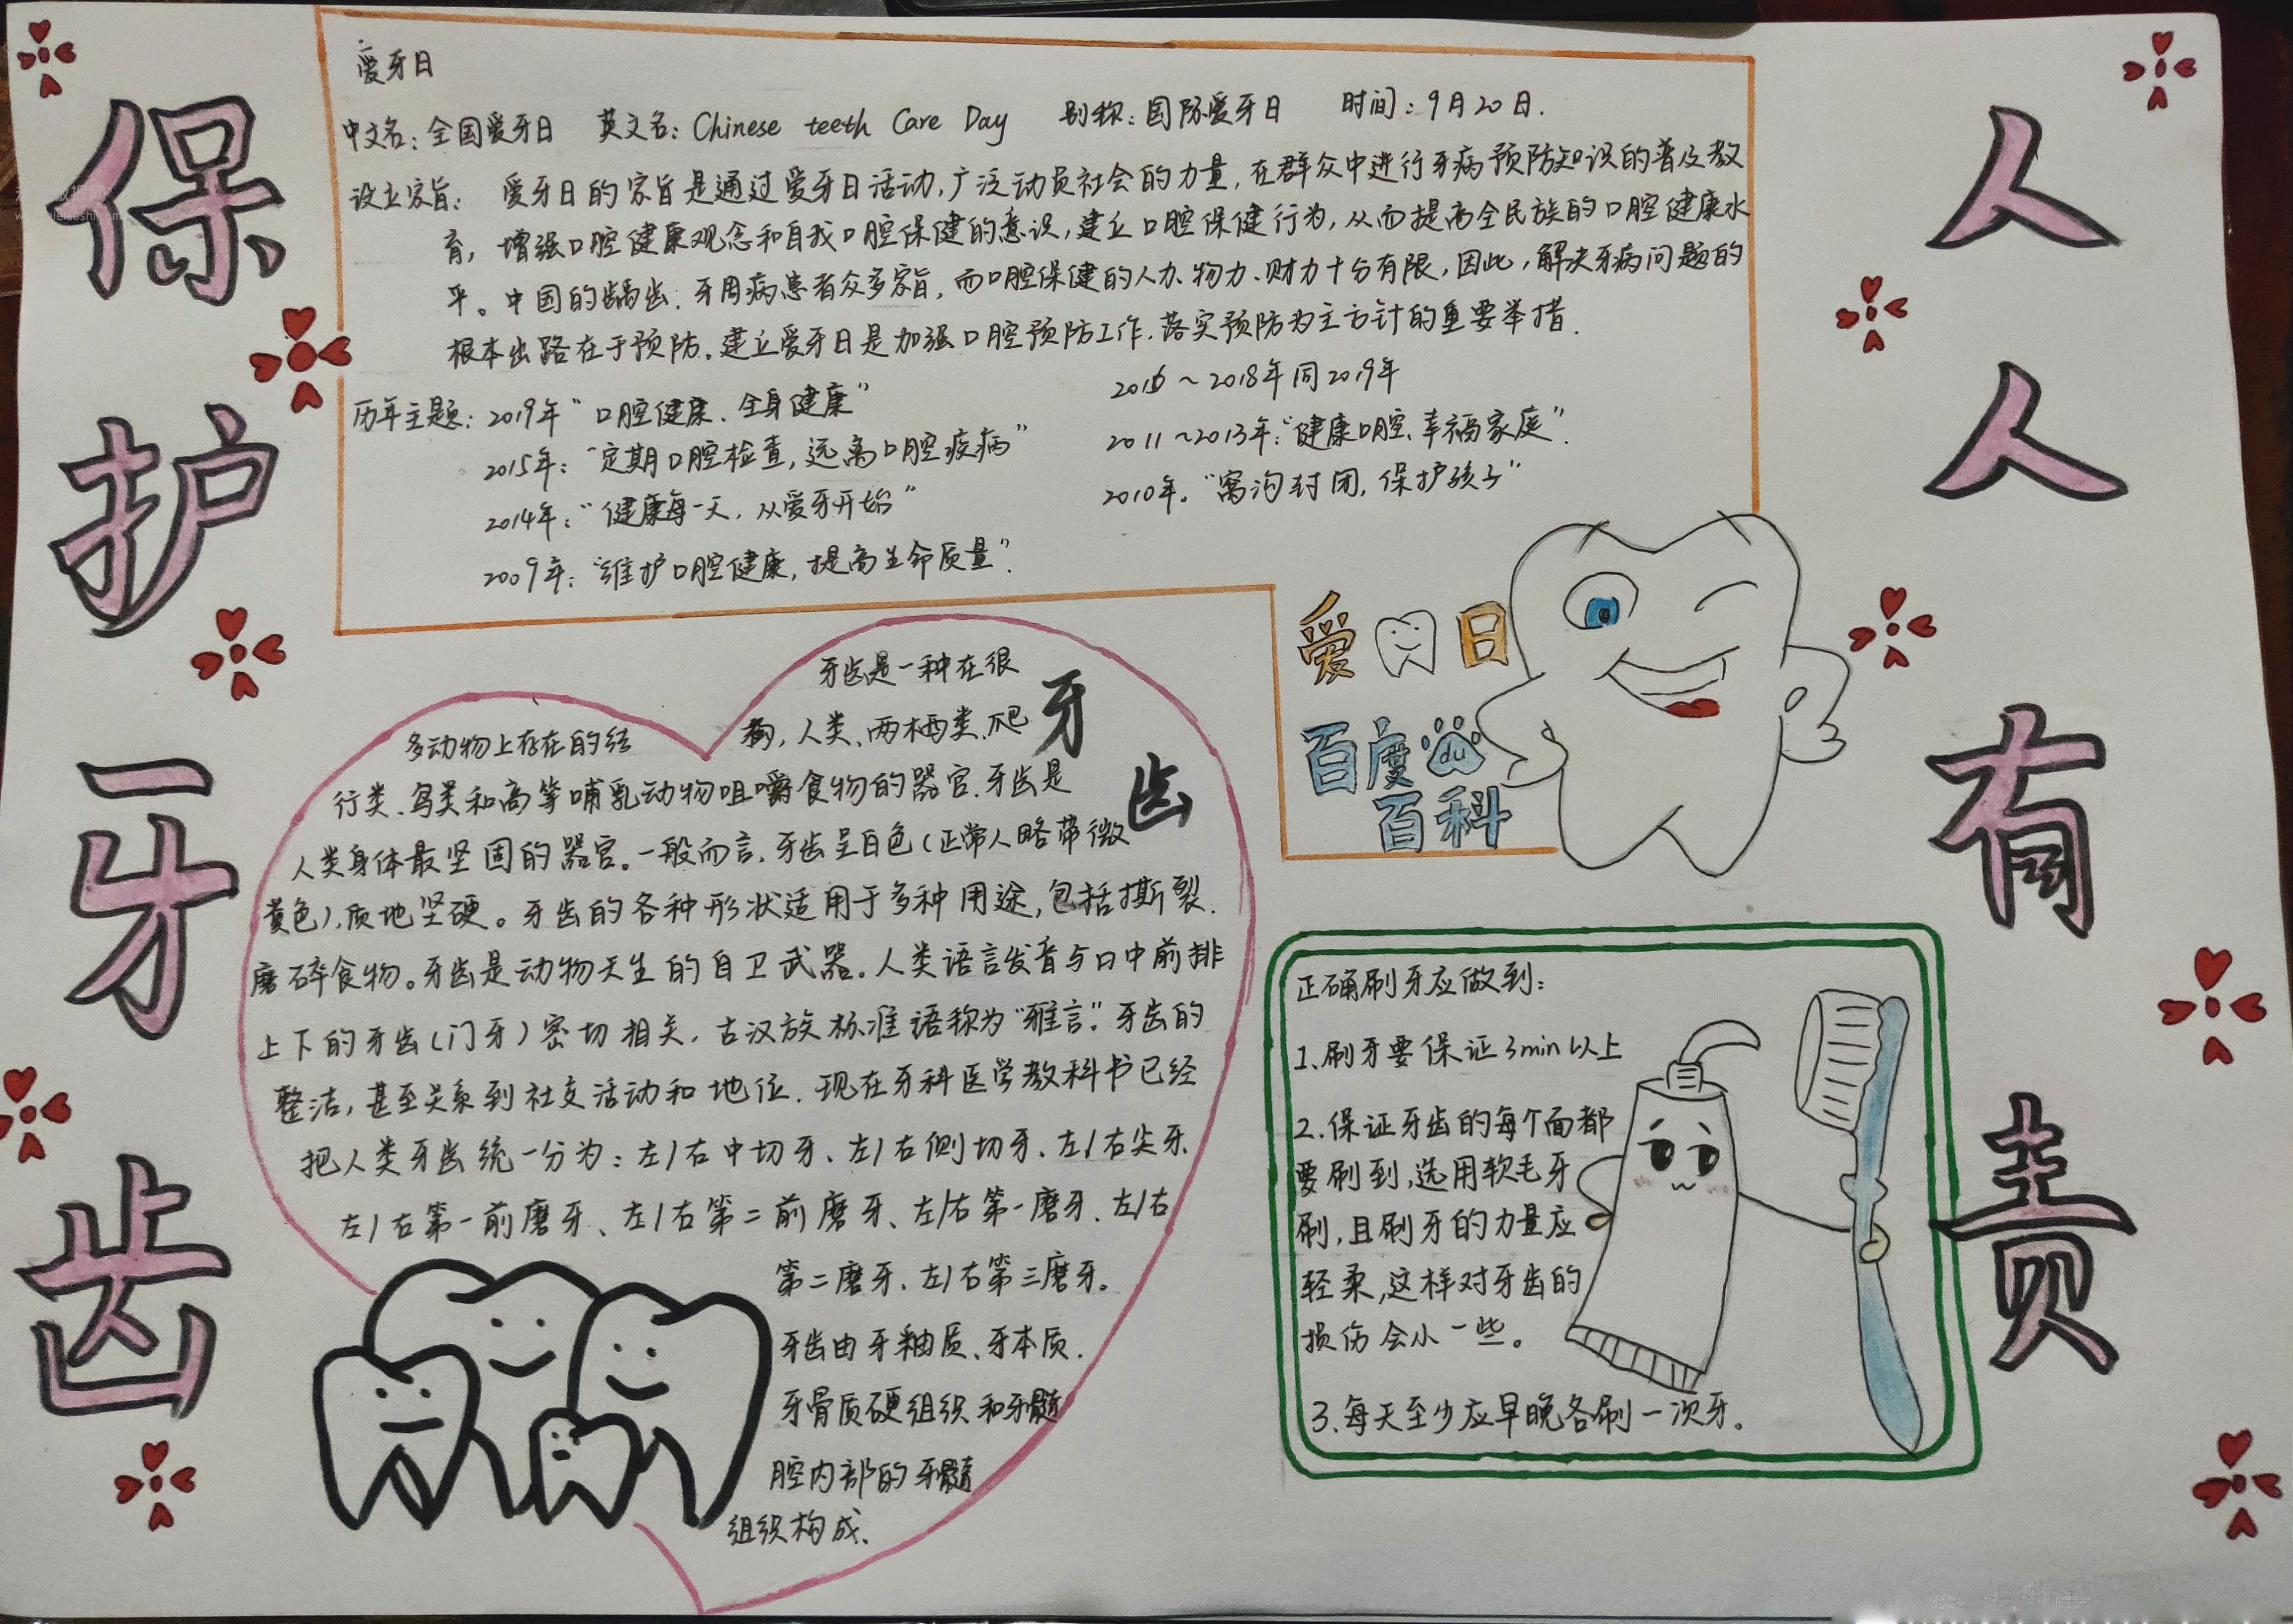 保护牙齿
人人有责
爱牙日
中文名：全国爱牙日 英文名：Chinese teeth Care Day 别称：国际爱牙日 时间：9月20日.
设立宗旨： 爱牙日的宗旨是通过爱牙日活动，广泛动员社会的力量，在群众中进行牙病预防知识的普及教
育，增强口腔健康观念和自我口腔保健的意识，建立口腔保健行为，从而提高全民族的口腔健康水
平。中国的龋齿、牙周病患者众多宗旨，而口腔保健的人力、物力、财力十分有限，因此，解决牙病问题的
根本出路在于预防。建立爱牙日是加强口腔预防工作、落实预防为主方针的重要举措.
历年主题：2019年“口腔健康、全身健康” 2016～2018年同2019年
2015年：“定期口腔检查，远离口腔疾病” 2011～2013年：“健康口腔、幸福家庭”.
2014年：“健康每一天，从爱牙开始” 2010年。“窝沟封闭，保护孩子”
2009年：“维护口腔健康，提高生命质量”.
爱 日
百度 du
百科
牙齿
牙齿是一种在很
多动物上存在的结 构，人类、两栖类、爬
行类、鸟类和高等哺乳动物咀嚼食物的器官.牙齿是
人类身体最坚固的器官。一般而言，牙齿呈白色（正常人略带微
黄色），质地坚硬。牙齿的各种形状适用于多种用途，包括撕裂、
磨碎食物。牙齿是动物天生的自卫武器。人类语言发音与口中前排
上下的牙齿（门牙）密切相关，古汉族标准语称为“雅言”。牙齿的
整洁，甚至关系到社交活动和地位．现在牙科医学教科书已经
把人类牙齿统一分为：左/右中切牙、左/右侧切牙、左/右尖牙、
左/右第一前磨牙、左/右第二前磨牙、左/右第一磨牙、左/右
第二磨牙、左/右第三磨牙。
牙齿由牙釉质、牙本质、
牙骨质硬组织和牙髓
腔内部的牙髓
组织构成.
正确刷牙应做到：
1.刷牙要保证3min以上
2.保证牙齿的每个面都
要刷到，选用软毛牙
刷，且刷牙的力量应
轻柔，这样对牙齿的
损伤会小一些。
3.每天至少应早晚各刷一次牙。